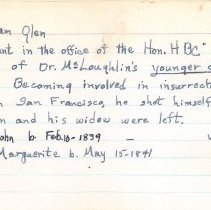 am Glen
nt in the office of the Hon. HBC
of Dr. McLoughlin's younger
Becoming involved in insurrect
n San Francisco, he shot himself
n and his widow were left.
ohn b. Feb. 10-1839 —
Marguerite b. May 15-1841